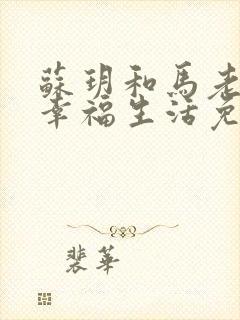 蘇玥和馬老
幸福生活免
裴華